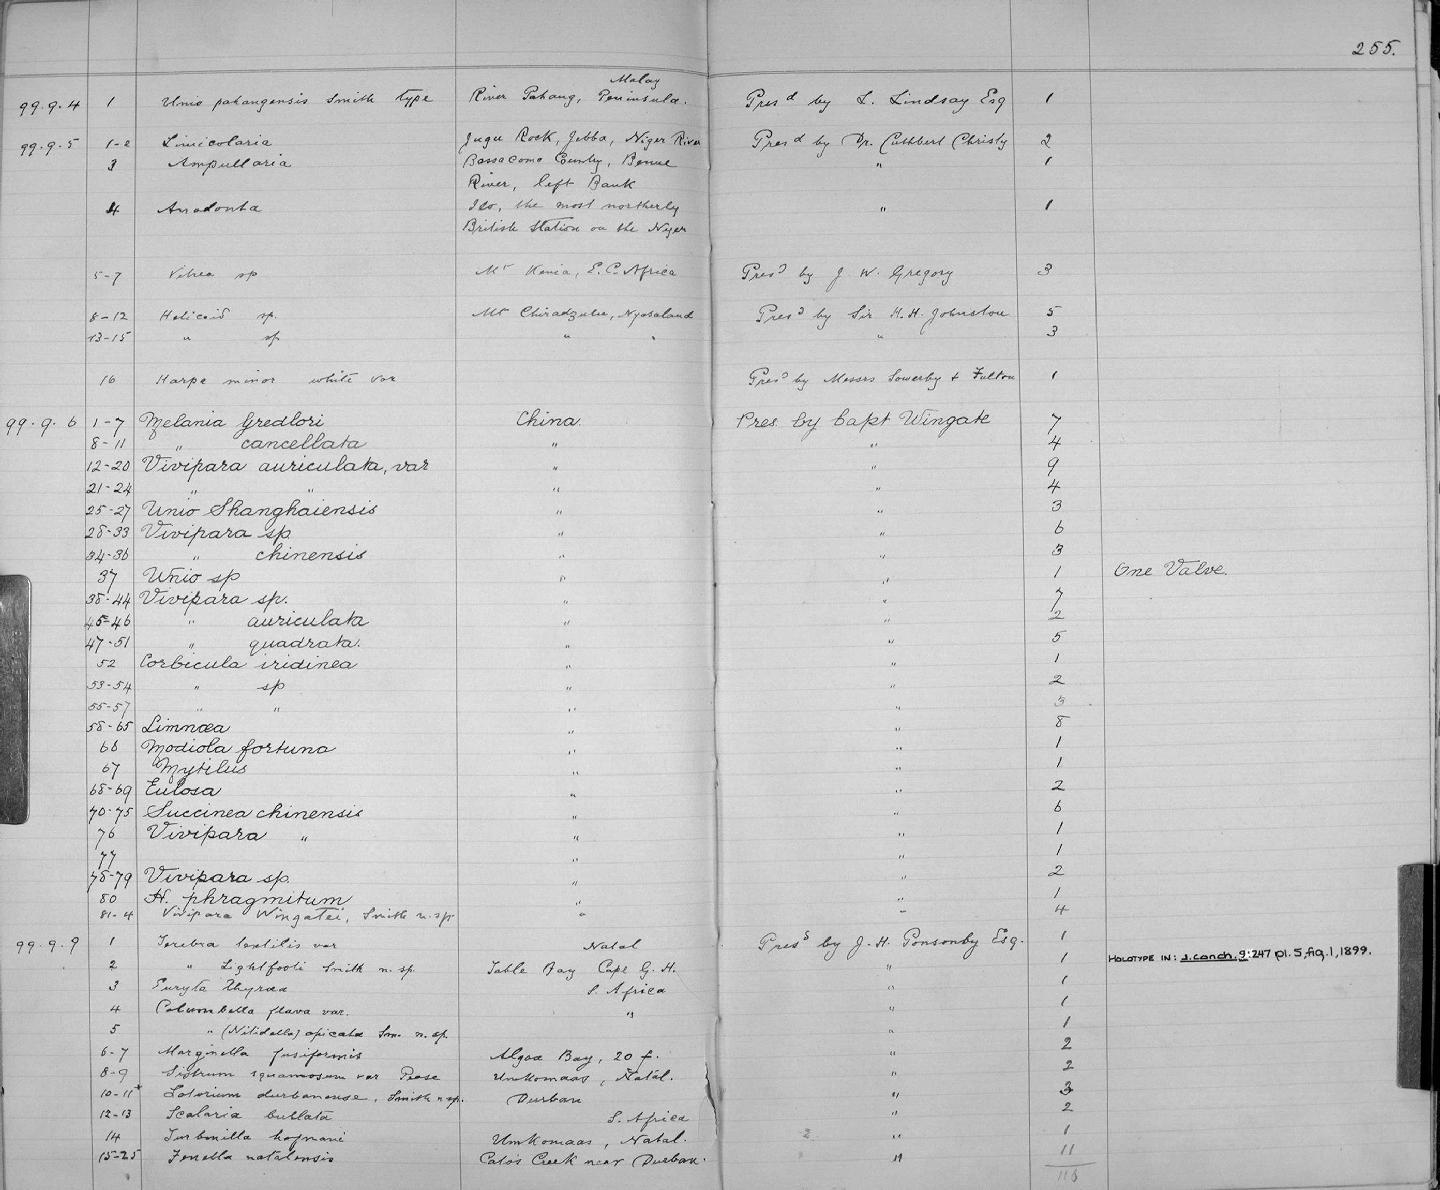 255.
99.9.4 1 Unio pahangensis Smith type River Pahang, Malay Peninsula. Pres^d by L. Lindsay Esq 1
99.9.5 1-2 Limicolaria Juju Rock, Jebba, Niger River Pres^d by Dr. Cuthbert Christy 2
3 Ampullaria Benue " 1
River, left Bank
4 Anodonta Ilo, the most northerly " 1
British Station on the Niger
5-7 Vitrea sp M^t Kenia, E.C. Africa Pres^d by J. W. Gregory 3
8-12 Helicoid sp. M^t Chiradzulu, Nyasaland Pres^d by Sir H.H. Johnston 5
13-15 " sp " " " 3
16 Harpa minor white var Pres^d by Messrs Sowerby & Fulton 1
99.9.6 1-7 Melania Gredleri China Pres by Capt Wingate 7
8-11 " cancellata " " 4
12-20 Vivipara auriculata, var " " 9
21-24 " " " " 4
25-27 Unio Shanghaiensis " " 3
28-33 Vivipara sp " " 6
34-36 " chinensis " " 3
37 Unio sp " " 1 One Valve.
38-44 Vivipara sp. " " 7
45-46 " auriculata " " 2
47-51 " quadrata. " " 5
52 Corbicula iridinea " " 1
53-54 " sp " " 2
55-57 " " " " 3
58-65 Limnæa " " 8
66 Modiola fortuna " " 1
67 Mytilus " " 1
68-69 Eulosa " " 2
70-75 Succinea chinensis " " 6
76 Vivipara " " " 1
77 " " 1
78-79 Vivipara sp. " " 2
80 H. phragmitum " " 1
81-4 Vivipara Wingatei, Smith n. sp. " " 4
99.9.9 1 Terebra textilis var Natal Pres^d by J. H. Ponsonby Esq. 1
2 " Lightfooti Smith n. sp. Table Bay Cape G. H. " 1 HOLOTYPE IN: J. Conch. 9:247 pl. 5, fig. 1, 1899.
3 Euryta S. Africa " 1
4 Columbella flava var. " " 1
5 " (Nitidella) apicata Sm. n. sp. " 1
6-7 Marginella fusiformis Algoa Bay, 20 f. " 2
8-9 Sistrum squamosum var Pease Umkomaas, Natal. " 2
10-11+ Lotorium durbanense, Smith n sp. Durban " 3
12-13 Scalaria bullata S. Africa " 2
14 Turbonilla hofmani Umkomaas, Natal. 2 " 1
15-25 Fenella natalensis Cato's Creek near Durban. " 11